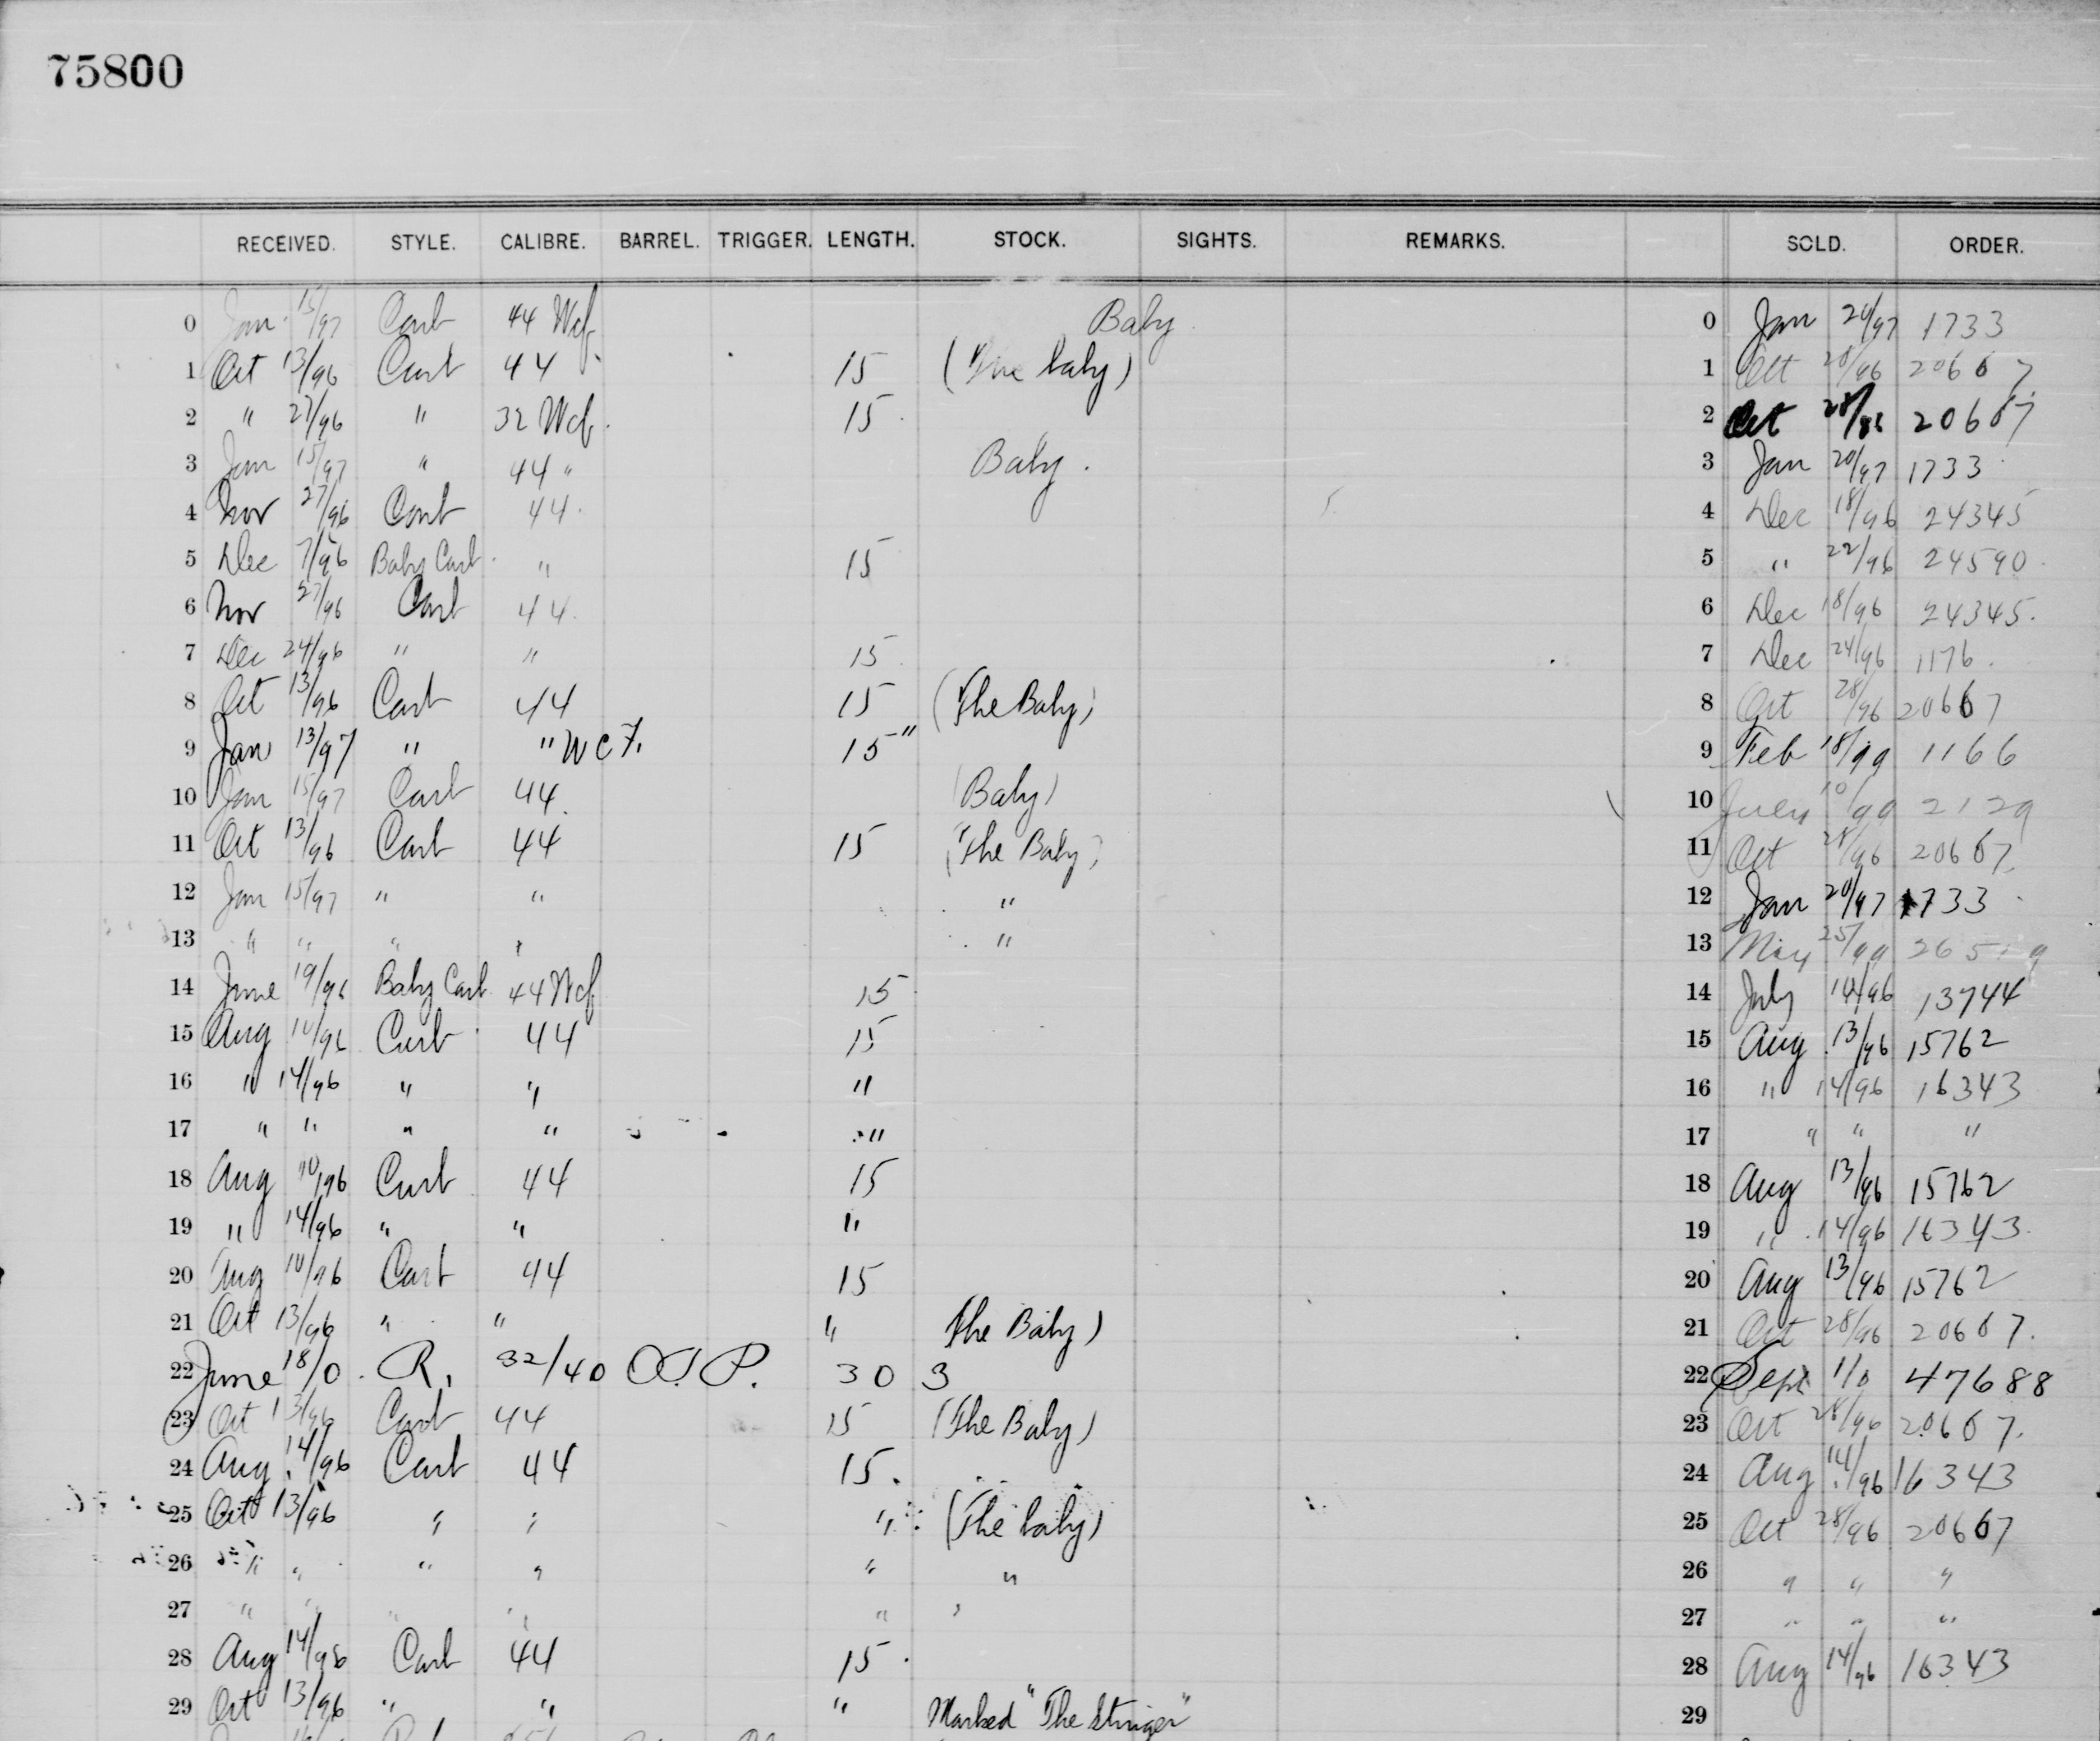 75800
RECEIVED. STYLE. CALIBRE. BARREL. TRIGGER. LENGTH. STOCK. SIGHTS. REMARKS. SOLD. ORDER.
0 Jan. 15/97 Carb 44 Wcf. Baby 0 Jan 20/97 1733
1 Oct 13/96 Carb 44 15 (The baby) 1 Oct 28/96 20667
2 " 27/96 " 32 Wcf. 15 2 Oct 28/96 20667
3 Jan 15/97 " 44 " Baby. 3 Jan 20/97 1733
4 Nov 27/96 Carb 44 4 Dec 18/96 24345
5 Dec 7/96 Baby Carb " 15 5 " 22/96 24590
6 Nov 27/96 Carb 44 6 Dec 18/96 24345.
7 Dec 24/96 " " 15 7 Dec 24/96 1176.
8 Oct 13/96 Carb 44 15 (The Baby) 8 Oct 28/96 20667
9 Jan 13/97 " " W C F. 15" 9 Feb 18/99 1166
10 Jan 15/97 Carb 44 (Baby) 10 July 10/99 2129
11 Oct 13/96 Carb 44 15 (The Baby) 11 Oct 28/96 20667
12 Jan 15/97 " " " 12 Jan 20/97 1733
13 " " " " " 13 May 25/99
14 June 19/96 Baby Carb 44 Wcf 15 14 July 14/96 13744
15 Aug 10/96 Carb 44 15 15 Aug 13/96 15762
16 " 14/96 " " " 16 " 14/96 16343
17 " " " " " 17 " " "
18 Aug 10/96 Carb 44 15 18 Aug 13/96 15762
19 " 14/96 " " " 19 " 14/96 16343
20 Aug 10/96 Carb 44 15 20 Aug 13/96 15762
21 Oct 13/96 " " " The Baby) 21 Oct 28/96 20667.
22 June 18/0 R. 32/40 O. P. 30 3 22 Sept 1/0 47688
23 Oct 13/96 Carb 44 15 (The Baby) 23 Oct 28/96 20667.
24 Aug. 14/96 Carb 44 15. 24 Aug 14/96 16343
25 Oct 13/96 " " " (The baby) 25 Oct 28/96 20667
26 " " " " " " 26 " " "
27 " " " " " " 27 " " "
28 Aug 14/96 Carb 44 15. 28 Aug 14/96 16343
29 Oct 13/96 " " " Marked "The Stinger" 29